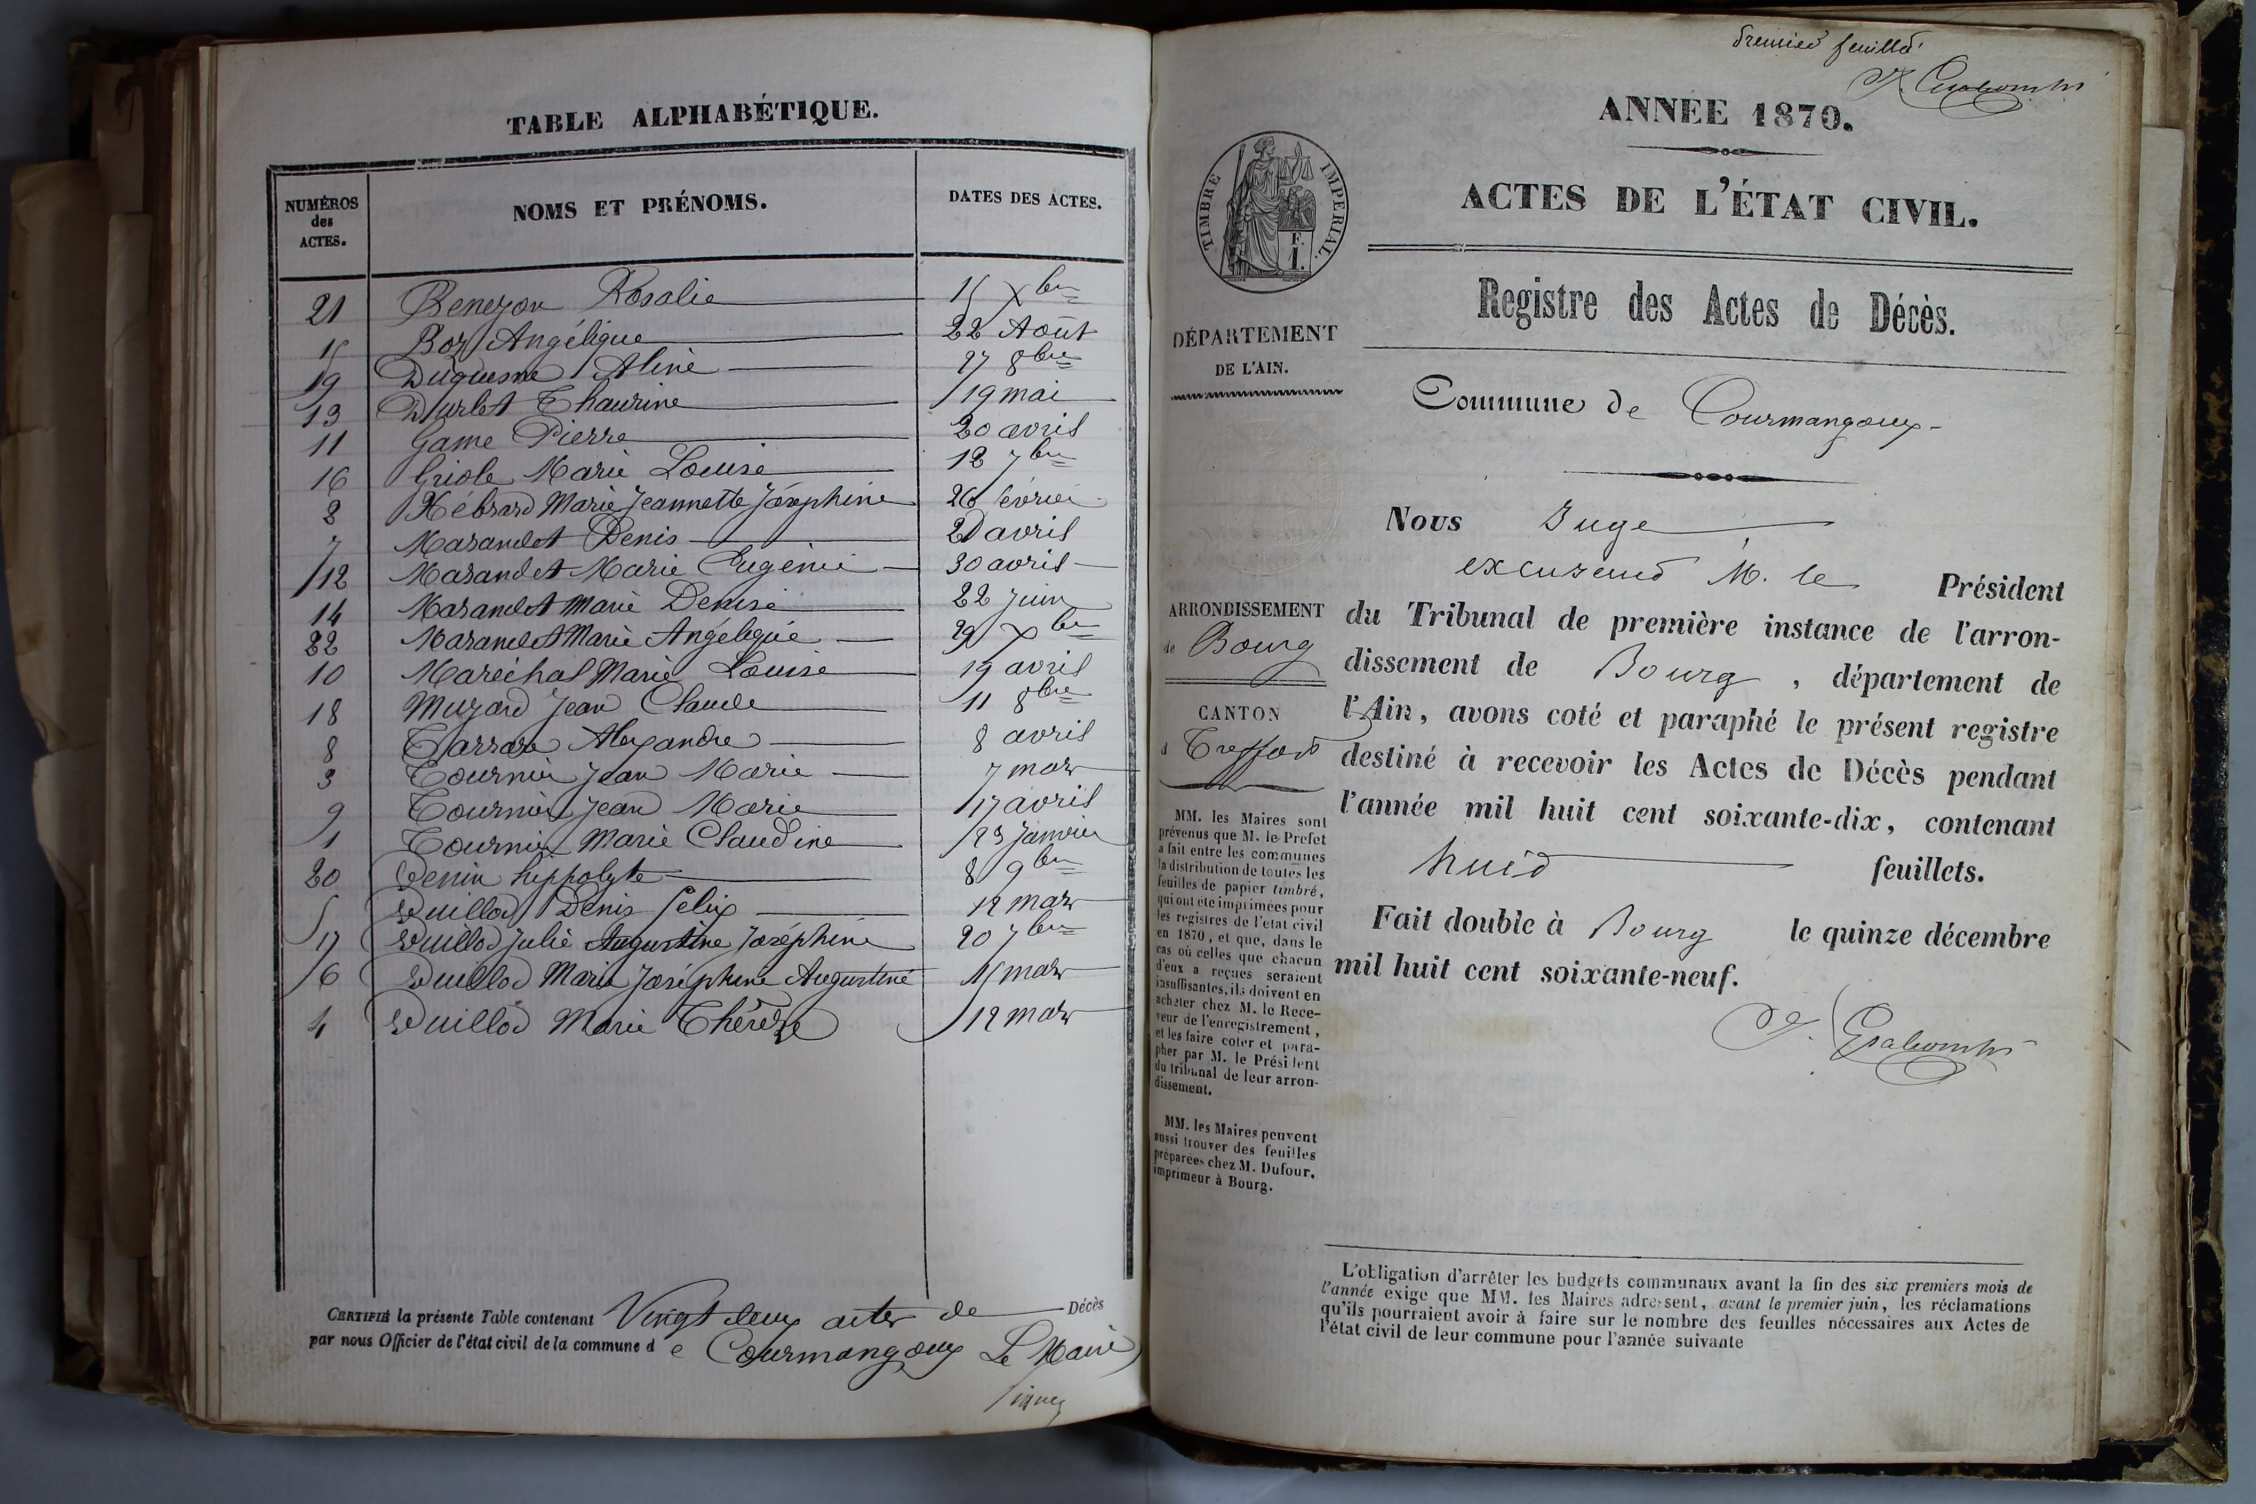 TABLE ALPHABÉTIQUE.
NUMÉROS des ACTES. NOMS ET PRÉNOMS. DATES DES ACTES.
21 Benezon Rosalie 15 Xbre
15 Boz Angélique 22 Août
19 Duquesne Aline 27 8bre
13 Durlet Thaurine 19 mai
11 Game Pierre 20 avril
16 Griole Marie Louise 12 7bre
2 Hébrard Marie Jeannette Joséphine 26 février
7 Marandet Denis 2 avril
12 Marandet Marie Eugénie 30 avril
14 Marandet Marie Denise 22 juin
22 Marandet Marie Angélique 29 Xbre
10 Maréchal Marie Louise 19 avril
18 Muzard Jean Claude 11 8bre
8 Carrare Alexandre 8 avril
3 Tournier Jean Marie 7 mars
9 Tournier Jean Marie 17 avril
1 Tournier Marie Claudine 23 Janvier
20 Venin hippolyte 8 9bre
5 Vuillod Denis Felix 12 mars
17 Vuillod Julie Augustine Joséphine 20 7bre
6 Vuillod Marie Joséphine Augustine 15 mars
4 Vuillod Marie Thérèze 12 mars
CERTIFIÉ la présente Table contenant Vingt deux actes de Décès
par nous Officier de l'état civil de la commune d e Courmangoux Le Maire
premier feuillet
ANNÉE 1870.
ACTES DE L'ÉTAT CIVIL.
TIMBRE IMPÉRIAL.
F. 1.
Registre des Actes de Décès.
DÉPARTEMENT
DE L'AIN.
Commune de Courmangoux
Nous Juge
excusand M. le Président
ARRONDISSEMENT
de Bourg
du Tribunal de première instance de l'arron-
dissement de Bourg, département de
CANTON
d Treffort
l'Ain, avons coté et paraphé le présent registre
destiné à recevoir les Actes de Décès pendant
l'année mil huit cent soixante-dix, contenant
huid feuillets.
Fait double à Bourg le quinze décembre
mil huit cent soixante-neuf.
MM. les Maires sont
prévenus que M. le Préfet
a fait entre les communes
la distribution de toutes les
feuilles de papier timbré,
qui ont été imprimées pour
les registres de l'état civil
en 1870, et que, dans le
cas où celles que chacun
d'eux a reçues seraient
insuffisantes, ils doivent en
acheter chez M. le Rece-
veur de l'enregistrement,
et les faire coter et para-
pher par M. le Président
du tribunal de leur arron-
dissement.
MM. les Maires peuvent
aussi trouver des feuilles
préparées chez M. Dufour,
imprimeur à Bourg.
L'obligation d'arrêter les budgets communaux avant la fin des six premiers mois de
l'année exige que MM. les Maires adressent, avant le premier juin, les réclamations
qu'ils pourraient avoir à faire sur le nombre des feuilles nécessaires aux Actes de
l'état civil de leur commune pour l'année suivante